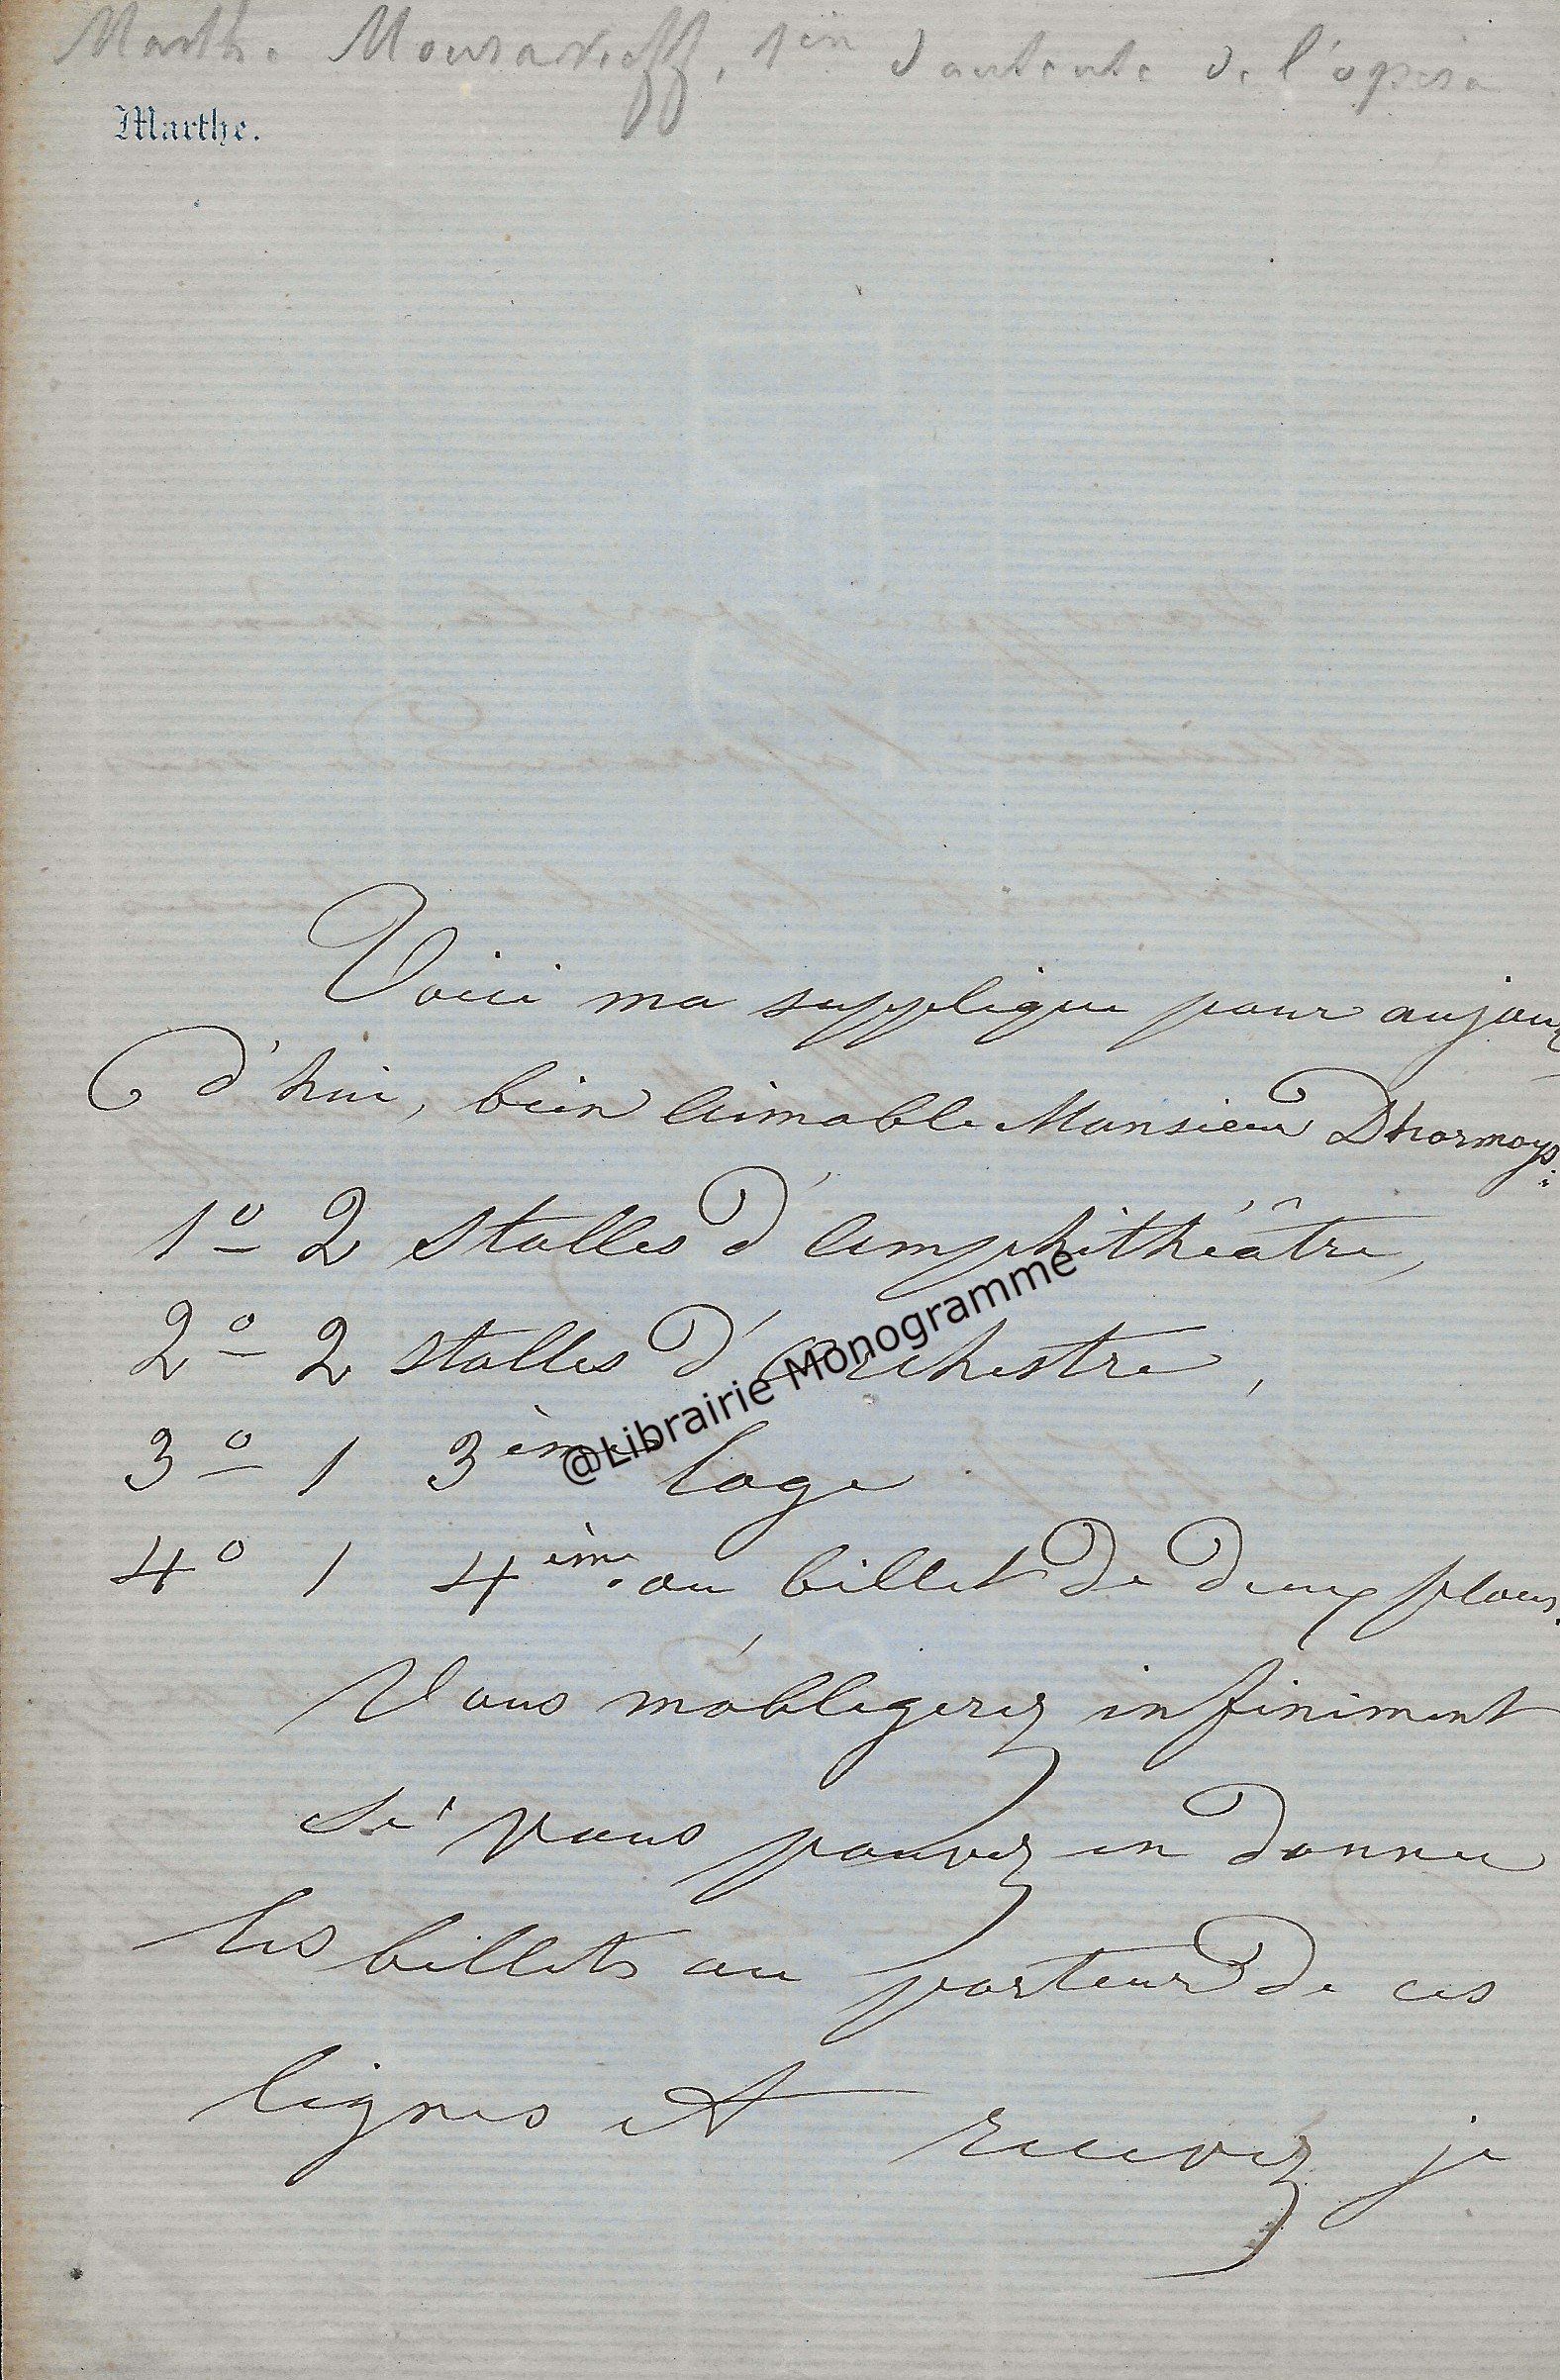 Marthe Mouravieff, 1ère danseuse de l'opéra
Marthe.
Voici ma supplique pour aujour
d'hui, bien aimable Monsieur Dhormoys:
1º 2 stalles d'amphithéâtre,
2º 2 stalles d'orchestre,
3º 1 3ème loge
4º 1 4ème ou billet de deux places.
Vous m'obligerez infiniment
si vous pouvez en donner
les billets au porteur de ces
lignes et recevez je
@Librairie Monogramme